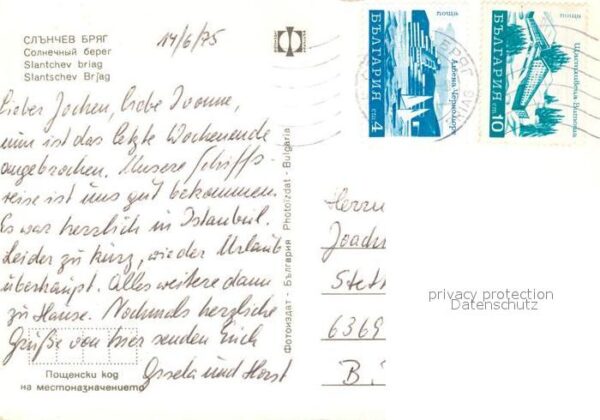 СЛЪНЧЕВ БРЯГ
Солнечный берег
Slantchev briag
Slantschev Brjag
14/6/75
Lieber Jochen, liebe Ivonne,
nun ist das letzte Wochenende
angebrochen. Unsere Schiffs-
reise ist uns gut bekommen.
Es war herrlich in Istanbul.
Leider zu kurz, wie der Urlaub
überhaupt. Alles weitere dann
zu Hause. Nochmals herzliche
Grüße von hier senden Euch
und Horst
Пощенски код
на местоназначението
Фотоиздат - България Photoizdat - Bulgaria
поща
БЪЛГАРИЯ
ст. 4
Албена Черноморие
поща
БЪЛГАРИЯ
ст. 10
БРЯГ
Herrn
Stett
6369
B.
privacy protection
Datenschutz